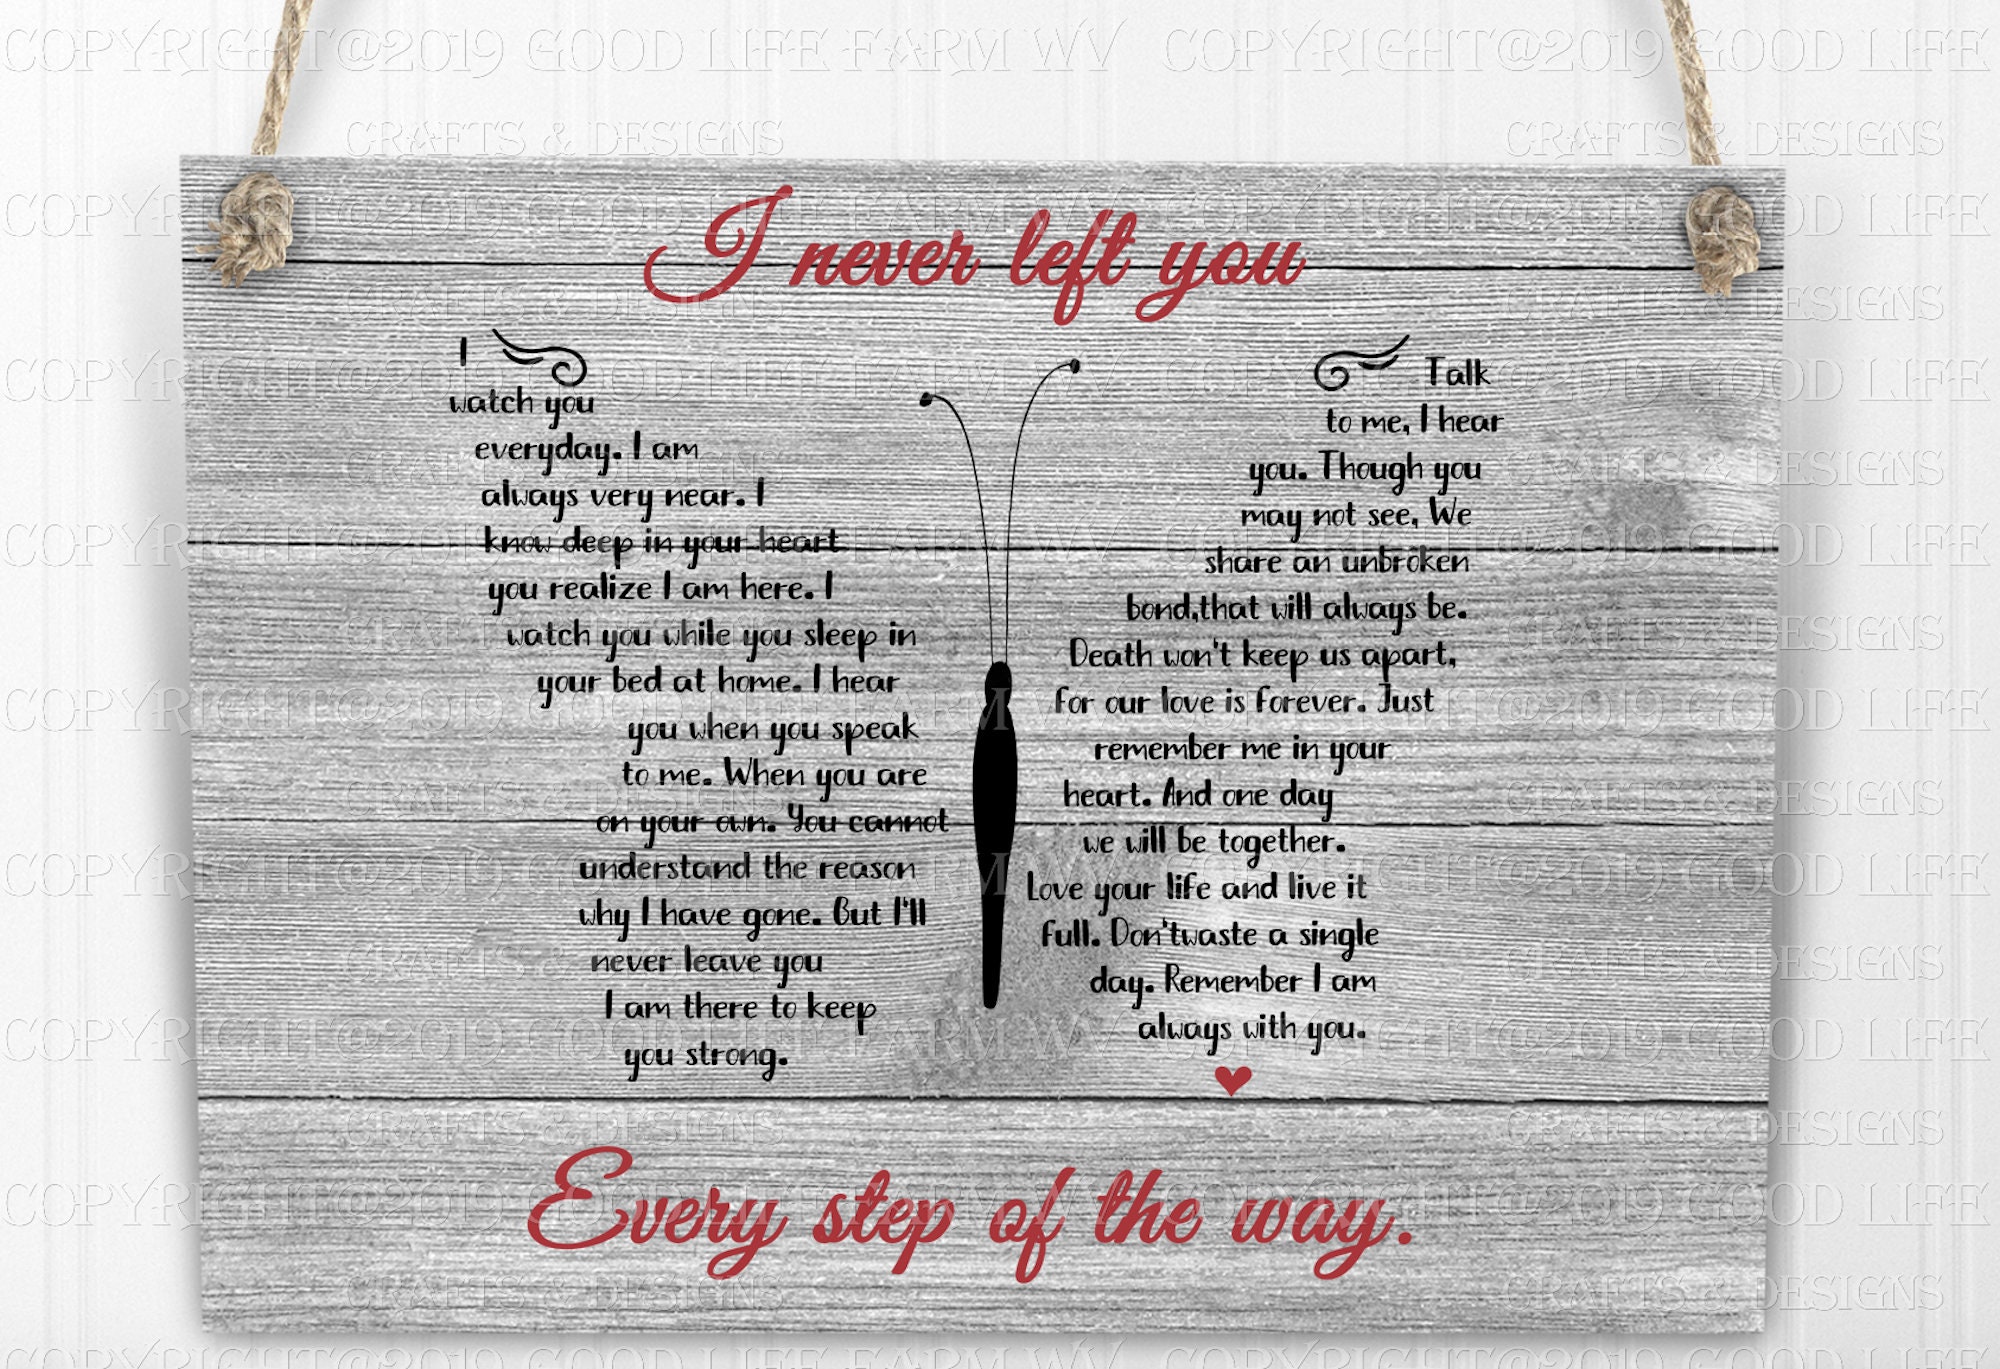 I never left you
I
watch you
everyday. I am
always very near. I
know deep in your heart
you realize I am here. I
watch you while you sleep in
your bed at home. I hear
you when you speak
to me. When you are
on your own. You cannot
understand the reason
why I have gone. But I'll
never leave you
I am there to keep
you strong.
Talk
to me, I hear
you. Though you
may not see, We
share an unbroken
bond,that will always be.
Death won't keep us apart,
for our love is forever. Just
remember me in your
heart. And one day
we will be together.
Love your life and live it
full. Don'twaste a single
day. Remember I am
always with you.
Every step of the way.
COPYRIGHT@2019 GOOD LIFE FARM WV
CRAFTS & DESIGNS